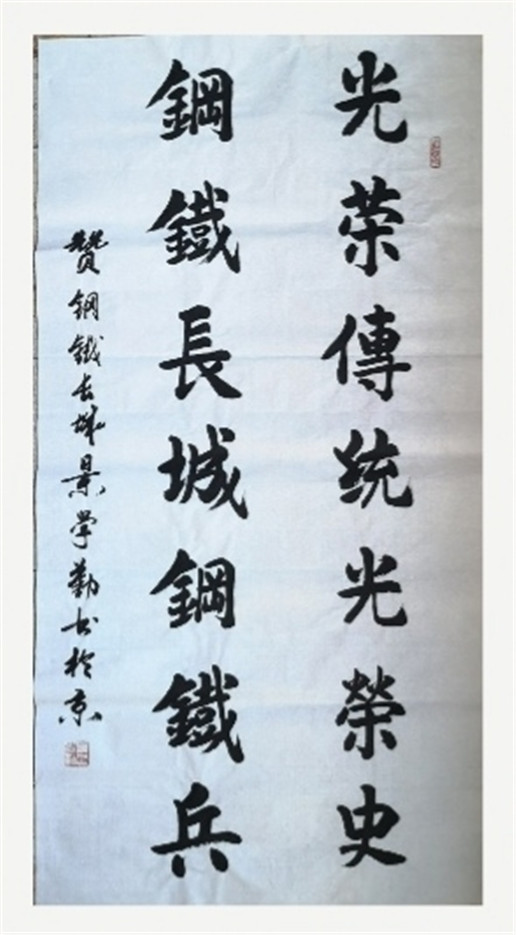 光荣傳統光榮史
鋼鐵長城鋼鐵兵
贊鋼鐵长城景学勤书於京